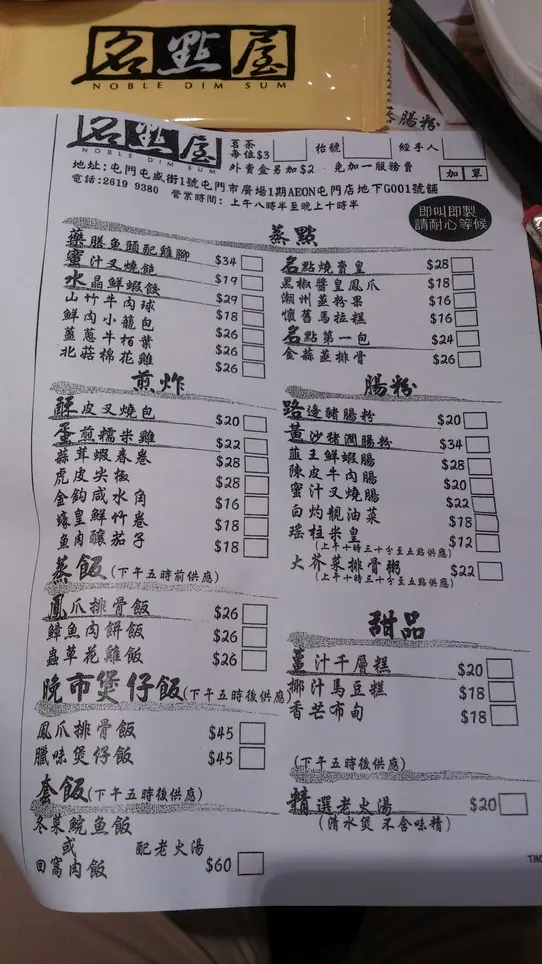 名點屋
NOBLE DIM SUM
腸粉
名點屋
NOBLE DIM SUM
茗茶
每位$3
枱號
經手人
外賣盒另加$2 免加一服務費
加單
地址:屯門屯盛街1號屯門市廣場1期AEON屯門店地下G001號舖
電話:2619 9380 營業時間: 上午八時半至晚上十時半
即叫即製
請耐心等候
蒸點
藥膳魚頭配雞腳 $34
蜜汁叉燒飽 $19
水晶鮮蝦餃 $29
山竹牛肉球 $18
鮮肉小籠包 $26
薑蔥牛栢葉 $26
北菇棉花雞 $26
名點燒賣皇 $28
黑椒醬皇鳳爪 $18
潮州蒸粉果 $16
懷舊馬拉糕 $16
名點第一包 $24
金蒜蒸排骨 $26
煎炸
酥皮叉燒包 $20
蛋煎糯米雞 $22
蒜茸蝦春卷 $28
虎皮尖椒 $28
金鈎咸水角 $16
蠔皇鮮竹卷 $18
魚肉釀茄子 $18
腸粉
路邊豬腸粉 $20
黃沙豬潤腸粉 $34
韮王鮮蝦腸 $28
陳皮牛肉腸 $20
蜜汁叉燒腸 $22
白灼靚油菜 $18
瑤柱米皇 $12
(上午十時三十分至五點供應)
大芥菜排骨粥 $22
(上午十時三十分至五點供應)
蒸飯(下午五時前供應)
鳳爪排骨飯 $26
鱆魚肉餅飯 $26
蟲草花雞飯 $26
晚市煲仔飯(下午五時後供應)
鳳爪排骨飯 $45
臘味煲仔飯 $45
套飯(下午五時後供應)
冬菜鯇魚飯
或 配老火湯
回窩肉飯 $60
甜品
薑汁千層糕 $20
椰汁馬豆糕 $18
香芒布甸 $18
(下午五時後供應)
精選老火湯 $20
(清水煲 不含味精)